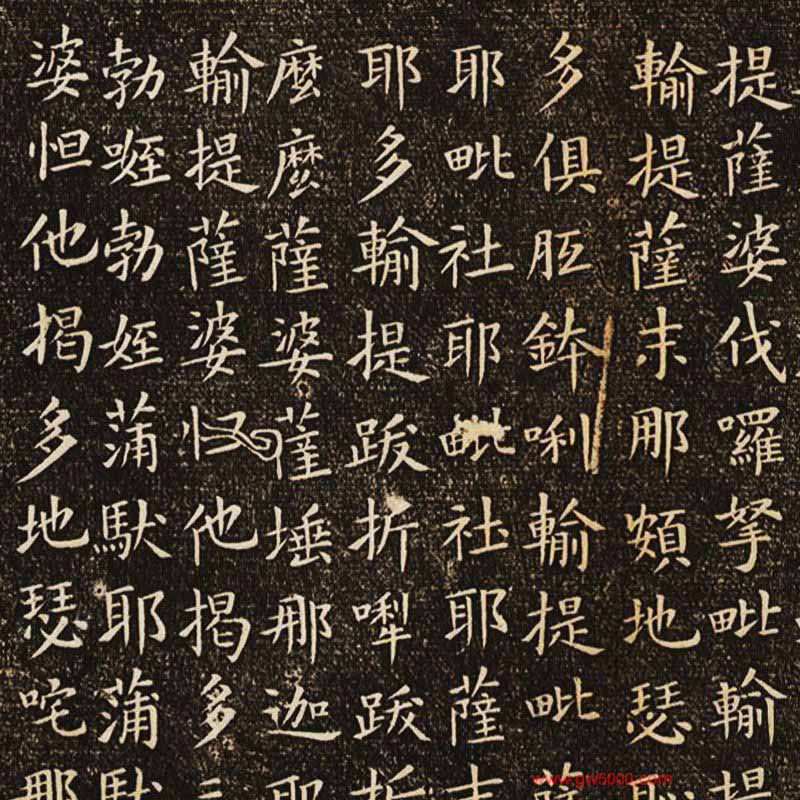 提薩婆伐囉拏毗輸提
輸提薩末那頞地瑟
多俱胝鉢唎輸提毗薩
耶毗社耶毗社耶薩末
耶多輸提跋折㘑跋折
麼麼薩婆薩埵那迦耶
輸提薩婆他揭多三
勃咥勃姪蒲馱耶蒲馱
婆怛他揭多地瑟咤那
www.gw5000.com